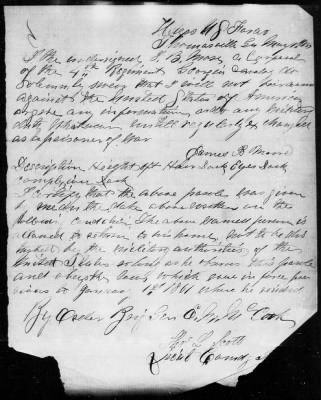 Hdqrs U S Forces
Thomasville Ga May
I the undersigned J. B. Moore a Corporal
of the 4th Regiment Georgia Cavalry do
Solemnly swear that I will not bear arms
against the United States of America
or give any information or do any military
duty whatsoever until regularly exchanged
as a prisoner of war
James B. Moore
Description Height 6 ft Hair Dark Eyes Dark
complexion Dark
I certify that the above parole was given
by me on the date above written on the
following conditions The above named person is
allowed to return to his home not to be dis
turbed by the military authorities of the
United States so long as he observes this parole
and obeys the laws which were in force pre
vious to January 1st 1861 where he resided
By Order Brig Gen E. M. McCook
L Scott